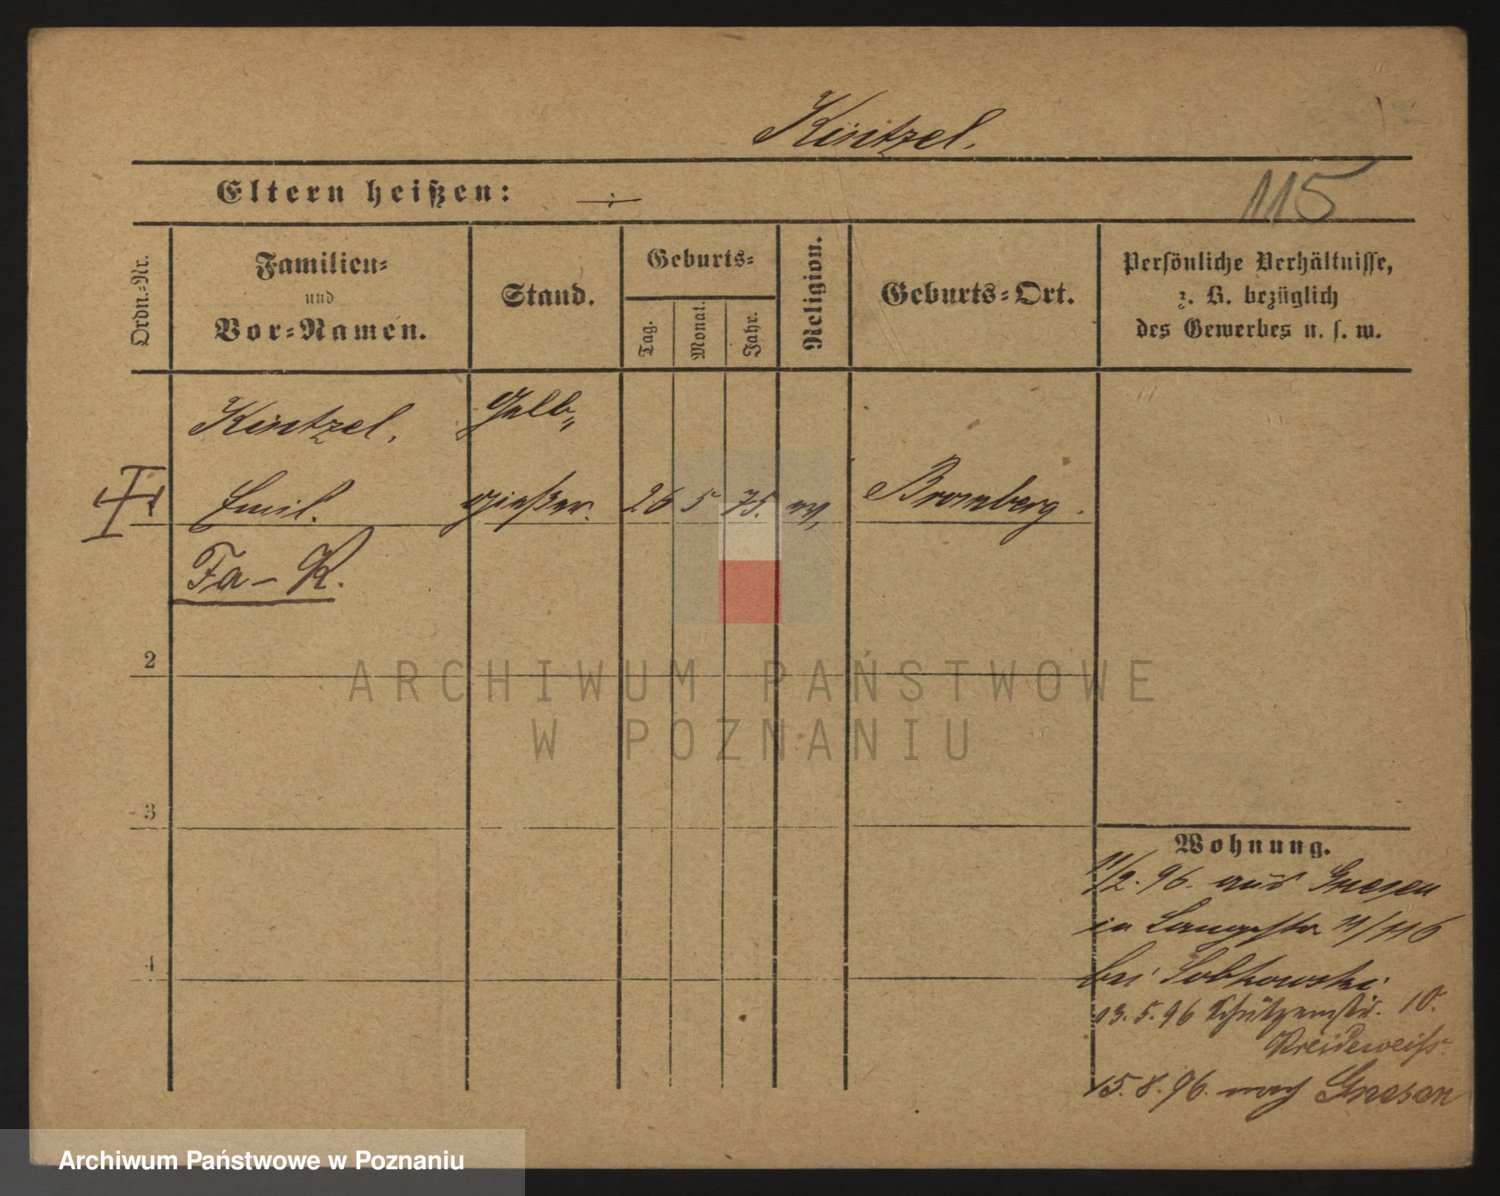 Kintzel.
Eltern heißen: ÷
115
Ordn.-Nr.
Familien-
und
Vor-Namen.
Stand.
Geburts-
Tag.
Monat.
Jahr.
Religion.
Geburts-Ort.
Persönliche Verhältnisse,
z. B. bezüglich
des Gewerbes u. s. w.
Kintzel, Gelb-
Emil. gießer. 26 5 75. ev, Bromberg.
Fa - K.
2
3
4
Wohnung.
11/2. 96. aus Gnesen
in Langestr 11/116
bei Sobkowski
13. 5. 96 Schützenstr. 10.
Kreideweiss.
15. 8. 96. nach Gnesen
ARCHIWUM PAŃSTWOWE
W POZNANIU
Archiwum Państwowe w Poznaniu